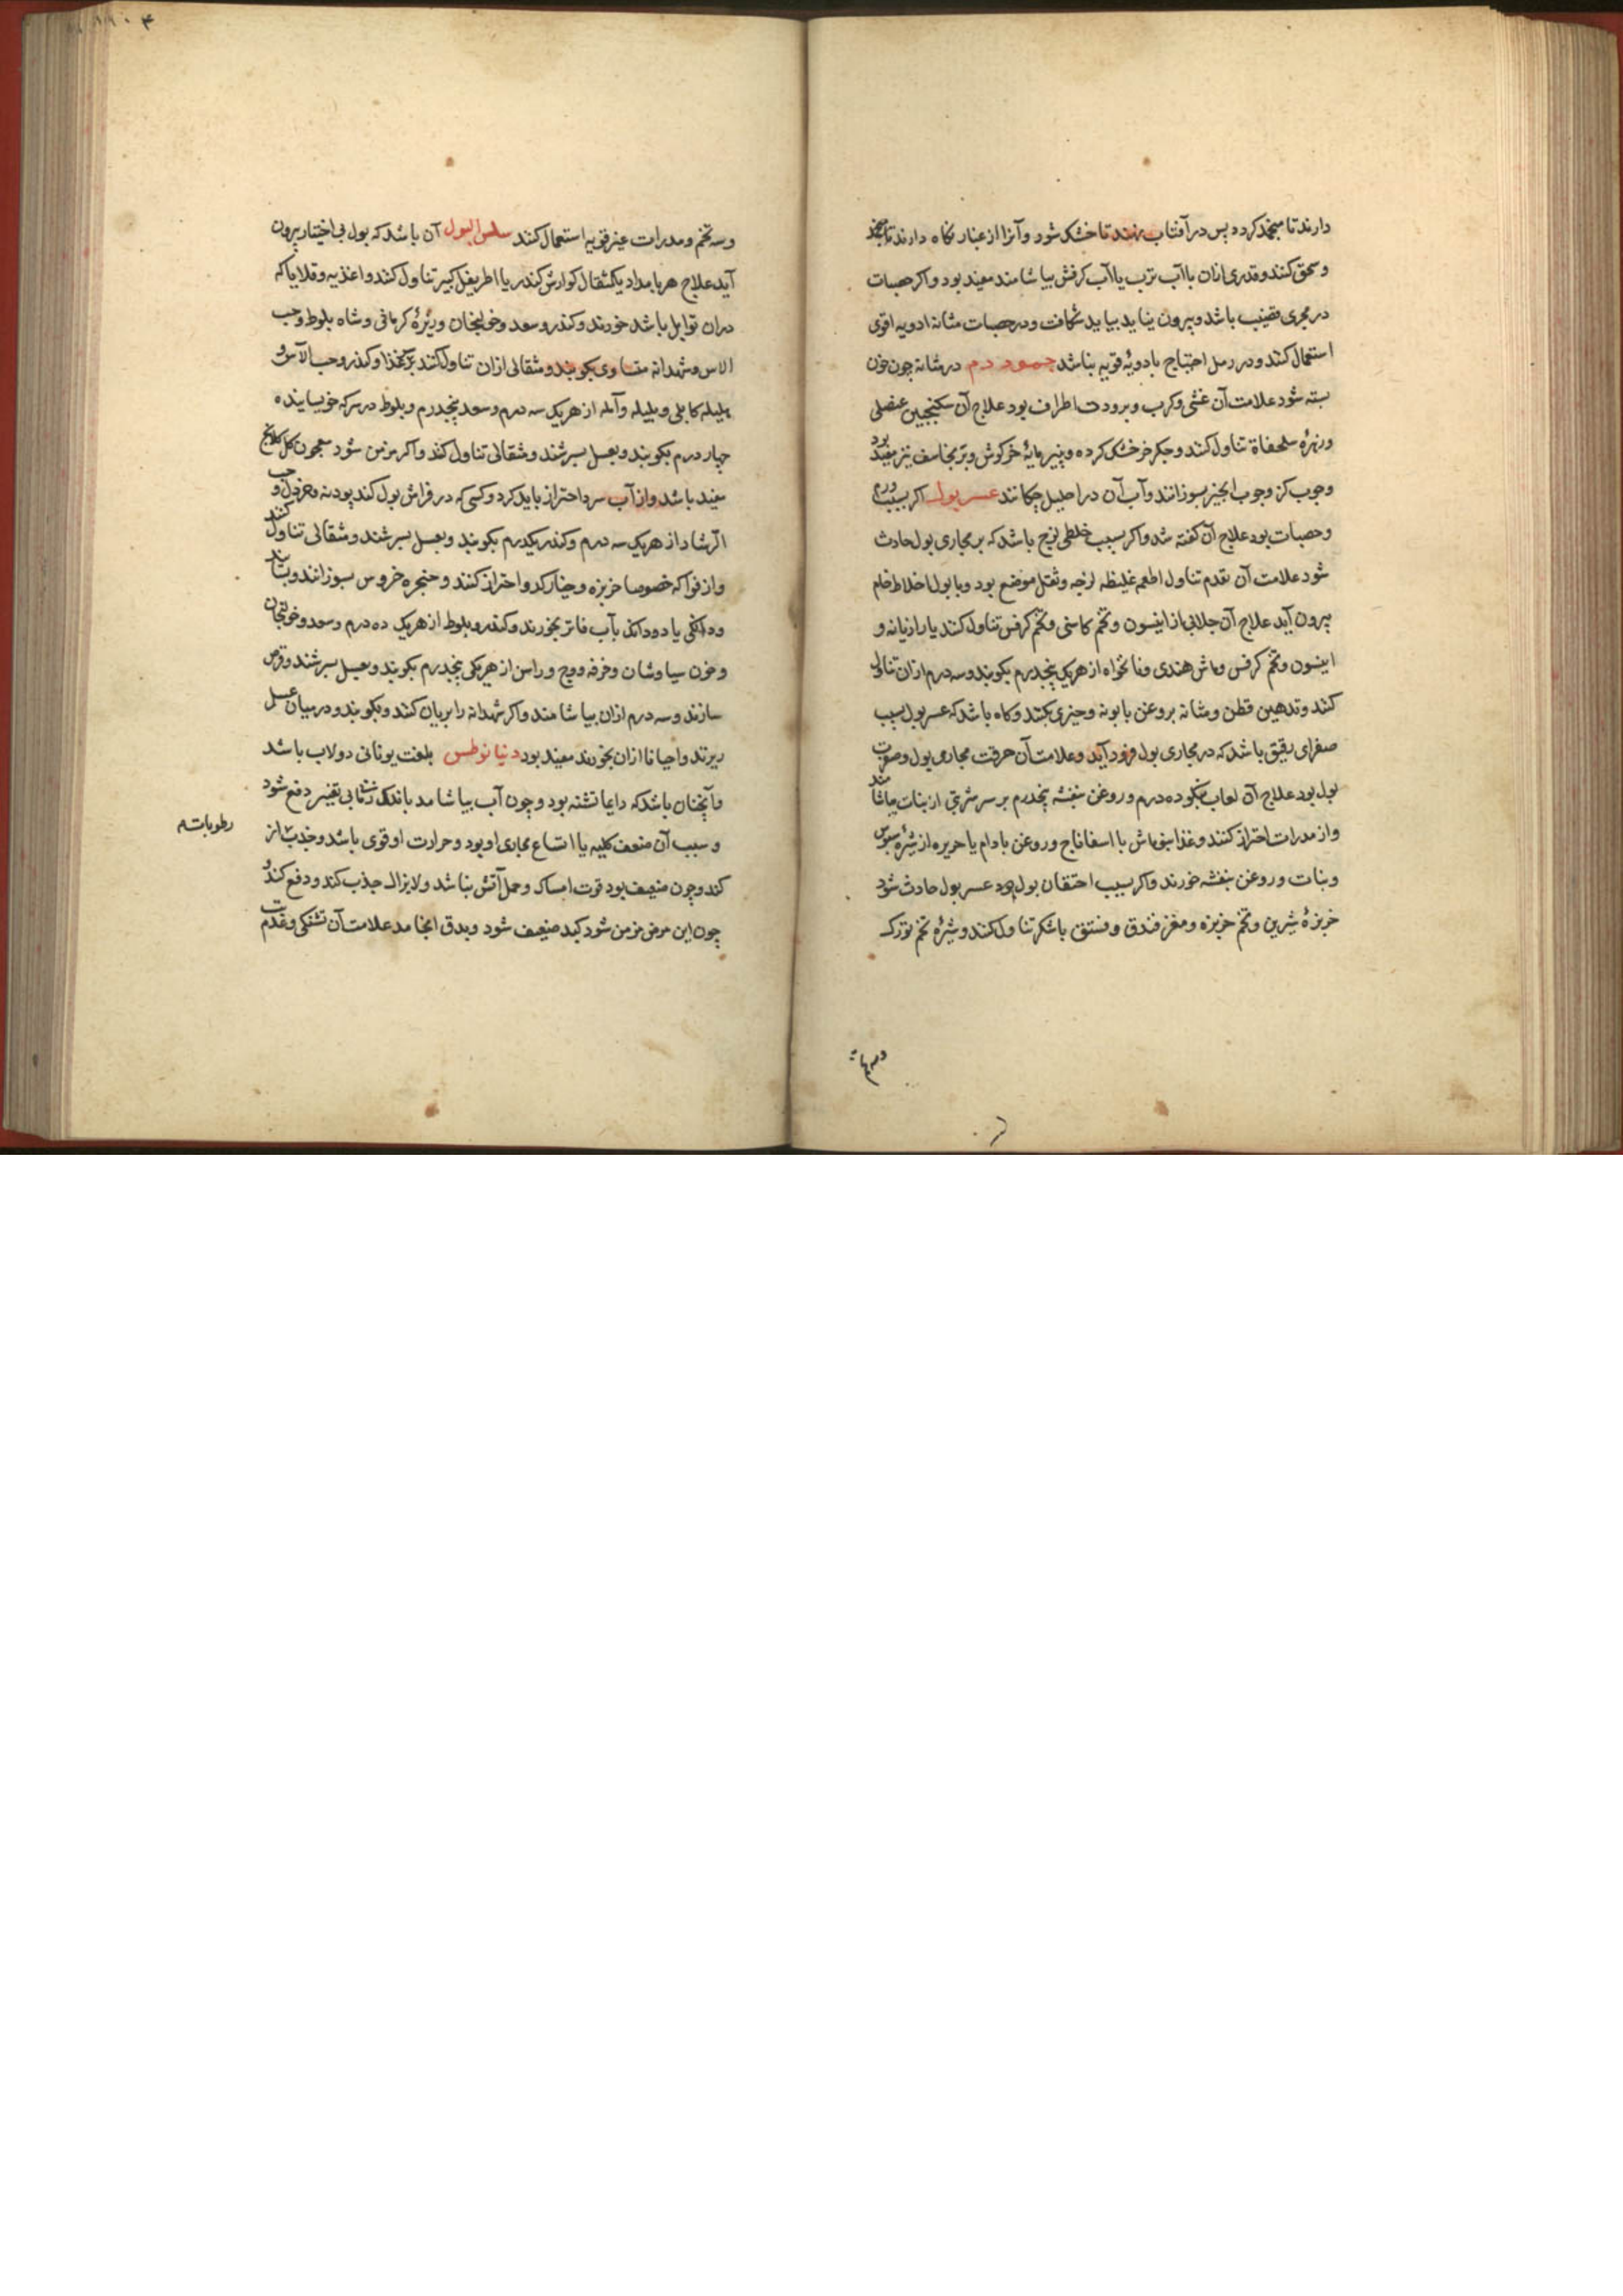 دارند تا منجمد کردد پس در آفتاب نهند تا خشک شود و آنرا از غبار نکاه دارند تا
و سحق کنند و قدری ازان با آب ترب یا آب کرفش بیاشامند مفید بود و اکر حصات
در مجری قضیب باشد و بیرون نیاید بباید شکافت و در حصات مثانه ادویه اقوی
استعمال کنند و در رمل احتیاج بادویهٔ قویه نباشد جمود دم در مثانه چون خون
بسته شود علامت آن غشی و کرب و برودت اطراف بود علاج آن سکنجبین عنصلی
و زهرهٔ سلحفاة تناول کنند و جکر خر خشک کرده و پنیرمایهٔ خرکوش و برنجاسف نیز مفید بود
و چوب کز و چوب انجیر بسوزانند و آب آن در احلیل چکانند عسر بول اکر بسبب ورم
و حصات بود علاج آن کفته شد و اکر بسبب خلطی لزج باشد که بر مجاری بول حادث
شود علامت آن تقدم تناول اطعمه غلیظه لزجه و ثقل موضع بود و با بول اخلاط خام
بیرون آید علاج آن جلابی از انیسون و تخم کاسنی و تخم کرفس تناول کنند یا رازیانه و
انیسون و تخم کرفس و ماش هندی و نانخواه از هریک پنجدرم بکوبند و سه درم ازان تناول
کنند و تدهین قطن و مثانه بروغن بابونه و خیری بکنند و کاه باشد که عسر بول بسبب
صفرای رقیق باشد که در مجاری بول فرود آید و علامت آن حرقت مجاری بول و صفرت
بول بود علاج آن لعاب بنکو ده درم و روغن بنفشه پنجدرم بر سر شربتی از نبات بیاشامند
و از مدرات احتراز کنند و غذا بنو ماش با اسفاناج و روغن بادام یا حریره از شیرهٔ سبوس
و نبات و روغن بنفشه خورند و اکر بسبب احتقان بول بود عسر بول حادث شود
خربزهٔ شیرین و تخم خربزه و مغز فندق و فستق با شکر تناول کنند و شیرهٔ تخم تورک
و سه تخم و مدرات غیر قویه استعمال کنند سلس البول آن باشد که بول بی اختیار بیرون
آید علاج هر بامداد یکمثقال کوارش کندر یا اطریفل کبیر تناول کنند و اغذیه و قلایا که
دران توابل باشد خورند و کندر و سعد و خولنجان و زیرهٔ کرمانی و شاه بلوط و حب
الاس و شهدانه متساوی بکوبند و مثقالی ازان تناول کنند و کندر و حب الآس و
هلیله کابلی و بلیله و آمله از هریک سه درم و سعد پنجدرم و بلوط در سرکه خویسانیده
چهار درم بکوبند و بعسل بسرشند و مثقالی تناول کنند و اکر مزمن شود معجون کلکلانج
مفید باشد و از آب سرد احتراز باید کرد و کسی که در فراش بول کند پودنه و خردل و حب
الرشاد از هریک سه درم و کندر یکدرم بکوبند و بعسل بسرشند و مثقالی تناول کنند
و از فواکه خصوصا خربزه و خیار کدو احتراز کنند و حنجره خروس بسوزانند و بسایند
و دانکی یا دو دانک بآب فاتر بخورند و کندر و بلوط از هریک ده درم و سعد و خولنجان
و خون سیاوشان و خرفه و وج و راسن از هریکی پنجدرم بکوبند و بعسل بسرشند و قرص
سازند و سه درم ازان بیاشامند و اکر شهدانه را بریان کنند و بکوبند و در میان عسل
ریزند و احیانا ازان بخورند مفید بود دنیانوطس بلغت یونانی دولاب باشد
و آنچنان باشد که دایما تشنه بود و چون آب بیاشامد باندک زمانی بی تغییر دفع شود
و سبب آن ضعف کلیه یا اتساع مجاری او بود و حرارت او قوی باشد و جذب از
رطوبات
کند و چون ضعیف بود قوت امساک و حمل آتش نباشد و لایزال جذب کند و دفع کند و
چون این مرض مزمن شود کبد ضعیف شود و بدق انجامد علامت آن تشنکی و تقدم